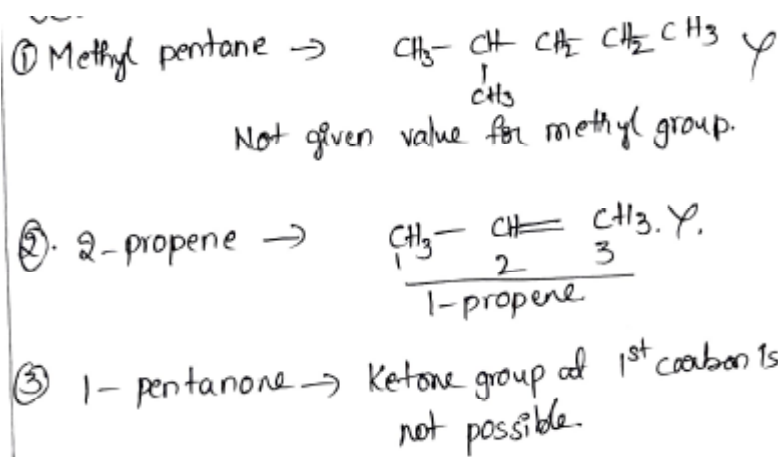 ① Methyl pentane → CH3- CH- CH2 CH2 CH3
CH3
Not given value for methyl group.
②. 2-propene → CH3- CH= CH3.
1 2 3
1-propene
③ 1- pentanone → Ketone group at 1st carbon is
not possible.